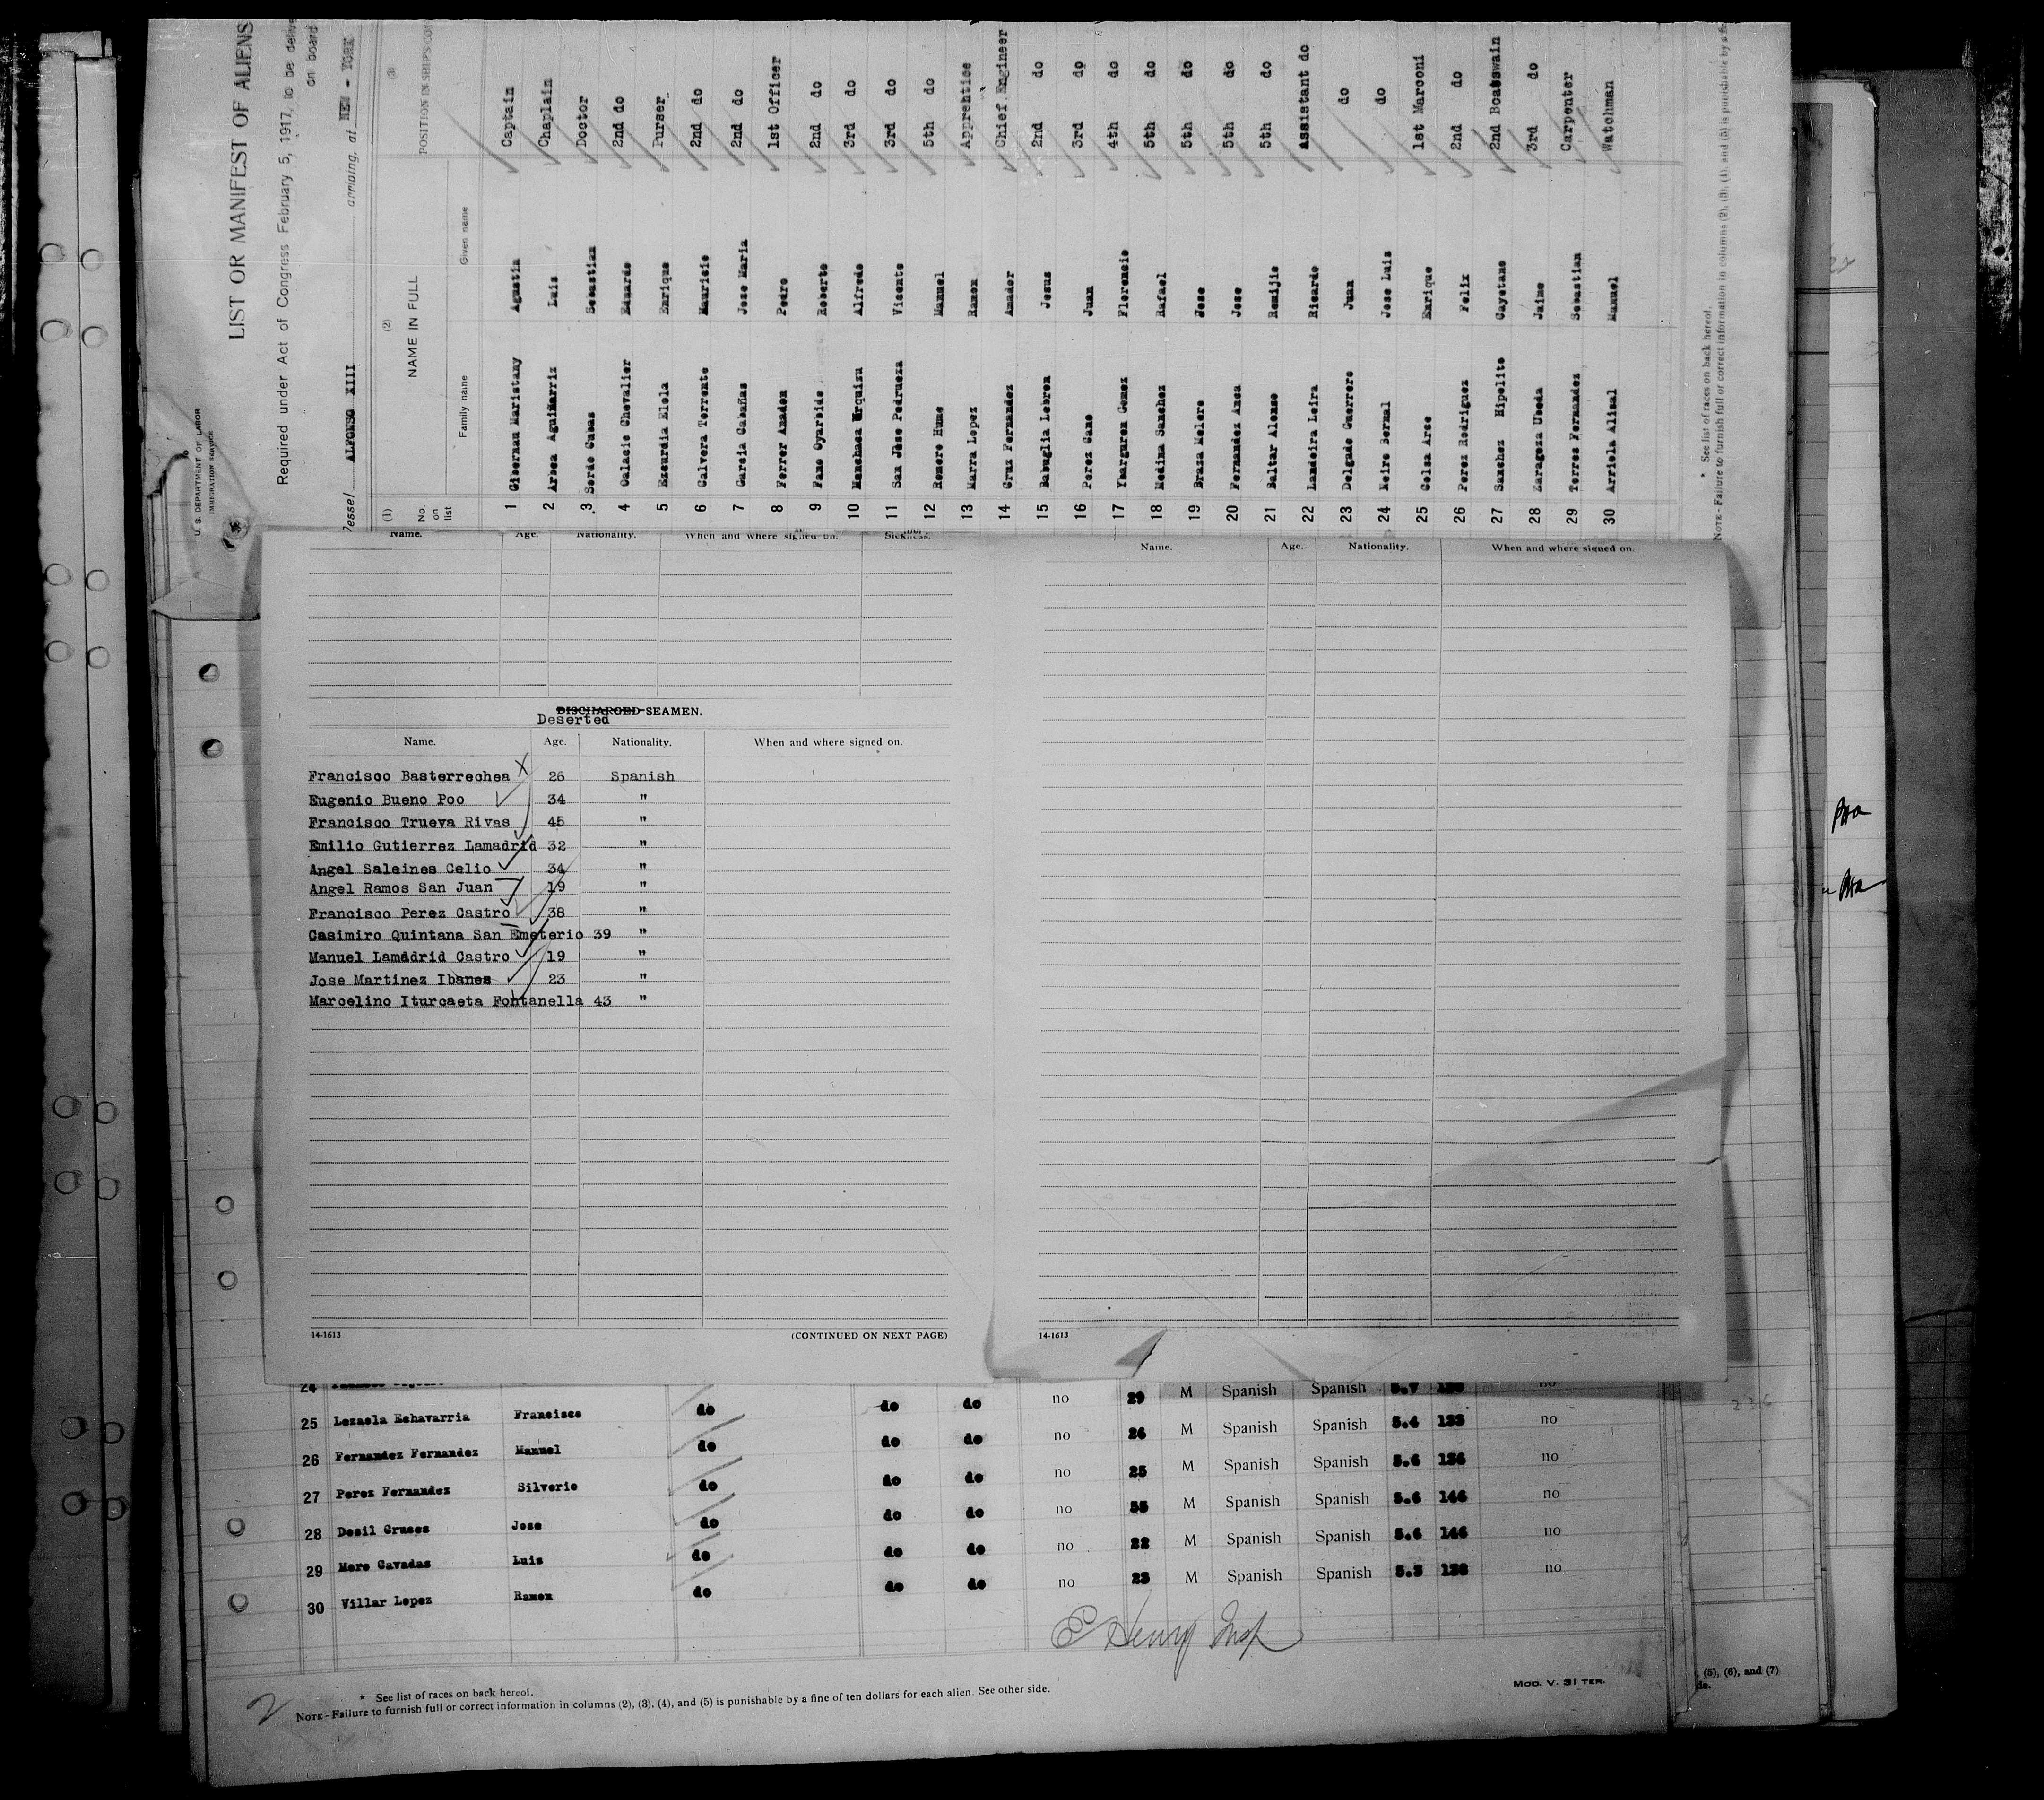 LIST OR MANIFEST OF ALIENS
Required under Act of Congress February 5, 1917, to be
on board
U. S. DEPARTMENT OF LABOR
IMMIGRATION SERVICE
Vessel ALFONSO XIII arriving at NEW - YORK
(1) (2) (3)
No. on list NAME IN FULL POSITION IN SHIP'S
Family name Given name
1 Gibernau Maristany Agustin Captain
2 Arbea Aguiñarriz Luis Chaplain
3 Sordo Cubas Sebastian Doctor
4 Galacie Chevalier Eduardo 2nd do
5 Ezcurdia Elola Enrique Purser
6 Calvera Torrente Mauricio 2nd do
7 Garcia Cabañas Jose Maria 2nd do
8 Ferrer Amadon Pedro 1st Officer
9 Fano Oyarbide Roberto 2nd do
10 Menchaca Urquizu Alfredo 3rd do
11 San Jose Pedrueza Vicente 3rd do
12 Romero Hume Manuel 5th do
13 Marra Lopez Ramon Apprentice
14 Cruz Fernandez Amador Chief Engineer
15 Babuglia Lebron Jesus 2nd do
16 Perez Cano Juan 3rd do
17 Ybarguren Gomez Florencio 4th do
18 Medina Sanchez Rafael 5th do
19 Braza Melero Jose 5th do
20 Fernandez Ansa Jose 5th do
21 Baltar Alonso Remijio 5th do
22 Landeira Leira Ricardo assistant do
23 Delgado Guerrero Juan do
24 Neiro Bernal Jose Luis do
25 Celsa Arse Enrique 1st Marconi
26 Perez Rodriguez Felix 2nd do
27 Sanchez Hipolito Cayetano 2nd Boatswain
28 Zaragoza Ubeda Jaime 3rd do
29 Torres Fernandez Sebastian Carpenter
30 Arriola Alisal Manuel Watchman
* See list of races on back hereof.
NOTE - Failure to furnish full or correct information in columns (2), (3), (4), and (5) is punishable by a
Name. Age. Nationality. When and where signed on. Sickness.
Name. Age. Nationality. When and where signed on.
DISCHARGED SEAMEN.
Deserted
Name. Age. Nationality. When and where signed on.
Francisco Basterrechea 26 Spanish
Eugenio Bueno Poo 34 "
Francisco Trueva Rivas 45 "
Emilio Gutierrez Lamadrid 32 "
Angel Saleines Celio 34 "
Angel Ramos San Juan 19 "
Francisco Perez Castro 38 "
Casimiro Quintana San Emeterio 39 "
Manuel Lamadrid Castro 19 "
Jose Martinez Ibanes 23 "
Marcelino Iturcaeta Fontanella 43 "
14-1613 (CONTINUED ON NEXT PAGE)
14-1613
24 no 29 M Spanish Spanish 5.7 no
25 Lezaola Echavarria Francisco do do do no 26 M Spanish Spanish 5.4 133 no
26 Fernandez Fernandez Manuel do do do no 25 M Spanish Spanish 5.6 136 no
27 Perez Fernandez Silverio do do do no 35 M Spanish Spanish 5.6 146 no
28 Desil Gruses Jose do do do no 22 M Spanish Spanish 5.6 146 no
29 Mero Cavadas Luis do do do no 23 M Spanish Spanish 5.5 138 no
30 Villar Lopez Ramon do do do
E Henry Insp
2
* See list of races on back hereof.
NOTE - Failure to furnish full or correct information in columns (2), (3), (4), and (5) is punishable by a fine of ten dollars for each alien. See other side.
MOD. V. 31 TER.
, (5), (6), and (7)